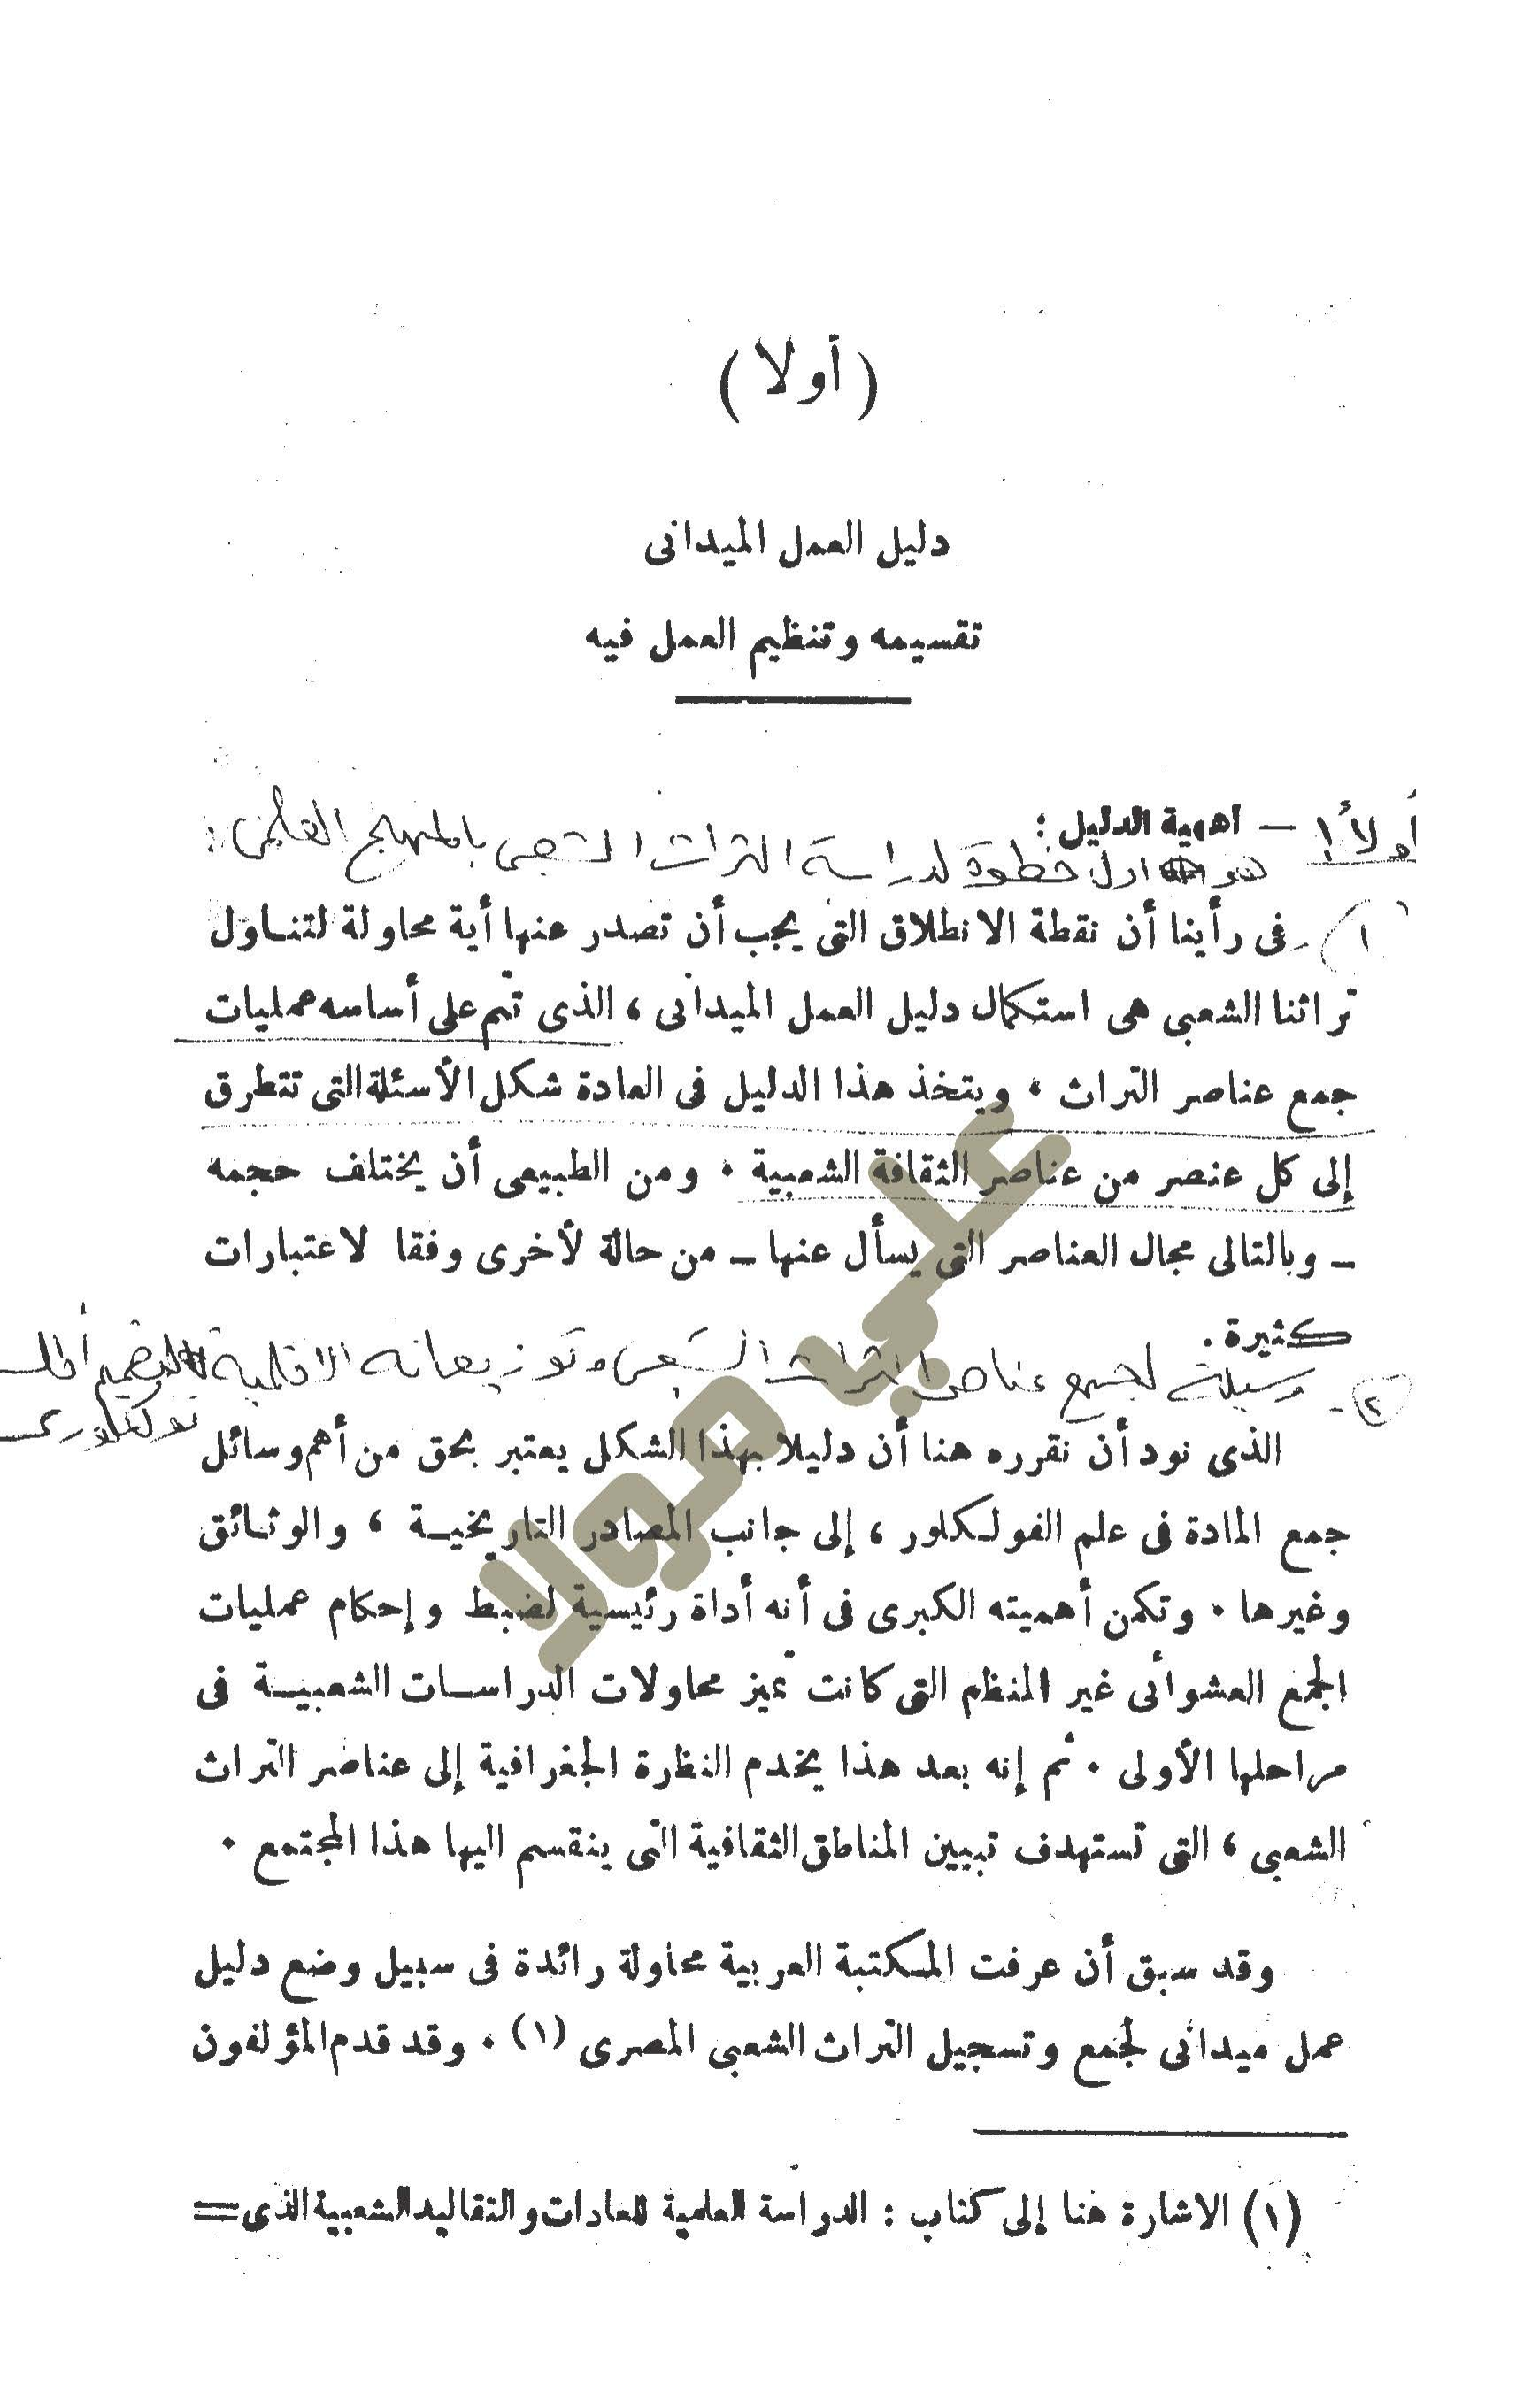 ( أولا )
دليل العمل الميدانى
تقسيمه وتنظيم العمل فيه
أولاً : ١ — أهمية الدليل :
هو أول خطوة لدراسة التراث الشعبى بالمنهج العلمى :
١ - فى رأينا أن نقطة الانطلاق التى يجب أن تصدر عنها أية محاولة لتناول
تراثنا الشعبى هى استكمال دليل العمل الميدانى ، الذى تتم على أساسه عمليات
جمع عناصر التراث . ويتخذ هذا الدليل فى العادة شكل الأسئلة التى تتطرق
إلى كل عنصر من عناصر الثقافة الشعبية . ومن الطبيعى أن يختلف حجمه
ـ وبالتالى مجال العناصر التى يسأل عنها ـ من حالة لأخرى وفقا لاعتبارات
كثيرة .
٢ - وسيلة لجمع عناصر التراث الشعبى وتوزيعاته الاقليمية أطلس
فولكلورى
الذى نود أن نقرره هنا أن دليلا بهذا الشكل يعتبر بحق من أهم وسائل
جمع المادة فى علم الفولكلور ، إلى جانب المصادر التاريخية ، والوثائق
وغيرها . وتكمن أهميته الكبرى فى أنه أداة رئيسية لضبط وإحكام عمليات
الجمع العشوائى غير المنظم التى كانت تميز محاولات الدراسات الشعبية فى
مراحلها الأولى . ثم إنه بعد هذا يخدم النظرة الجغرافية إلى عناصر التراث
الشعبى ، التى تستهدف تبيين المناطق الثقافية التى ينقسم اليها هذا المجتمع .
وقد سبق أن عرفت المكتبة العربية محاولة رائدة فى سبيل وضع دليل
عمل ميدانى لجمع وتسجيل التراث الشعبى المصرى (١) . وقد قدم المؤلفون
(١) الاشارة هنا إلى كتاب : الدراسة العلمية للعادات والتقاليد الشعبية الذى =
علي مولا